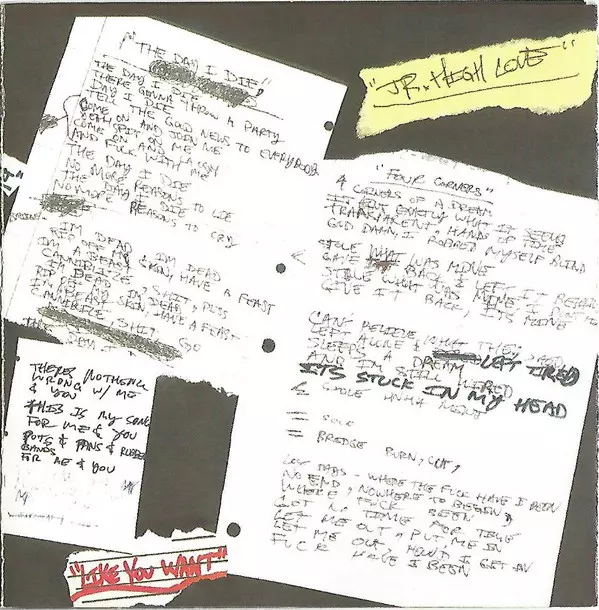 "THE DAY I DIE"
THE DAY I DIE
THERE GONNA THROW A PARTY
DAY I DIE
TELL THE GOOD NEWS TO EVERYBODY
COME
COME ON AND JOIN ME
COME SPIT ON ME
AND FUCK WITH ME
THE DAY I DIE
NO MORE REASONS TO LIE
THE DAY I DIE
NO MORE REASONS TO CRY
IM DEAD, IM DEAD
RIP OFF MY SKIN, HAVE A FEAST
IM A BEAST
CANNIBLIZE, SHIT, PISS
RIP DEAD
IM DEAD
SKIN, HAVE A FEAST
SHIT,
THE DAY I
THERES NOTHENG
WRONG W/ ME
& YOU
THIS IS MY SONG
FOR ME & YOU
POTS & PANS & RUBBER
BANDS
FOR ME & YOU
"LIKE YOU WANT"
"JR. HIGH LOVE"
"FOUR CORNERS"
4 CORNERS OF A DREAM
IT EXITLY WHAT IT SEEMS
TRANSPARENT, HANDS OF TIME
GOD DAMN, I ROBBED MYSELF BLIND
STOLE WHAT WAS MINE
GAVE IT BACK & LEFT IT
STOLE WHAT WAS MINE I
GIVE IT BACK, ITS MINE
CANT BELIEVE WHAT THEY SAID
LEFT ALONE &
SLEEPS A DREAM LEFT TIRED
AND IM STILL WIRED
ITS STUCK IN MY HEAD
STOLE WHAT MINE
= SOLO
= BRIDGE BURN, CUT,
TABS - WHERE THE FUCK HAVE I BEEN
NO END, NOWHERE TO BEGIN,
WHERE FUCK BEEN
GOT NO TIME FOR TIME
LET ME OUT, PUT ME IN
LET ME OUT, HOW'D I GET IN
FUCK HAVE I BEEN